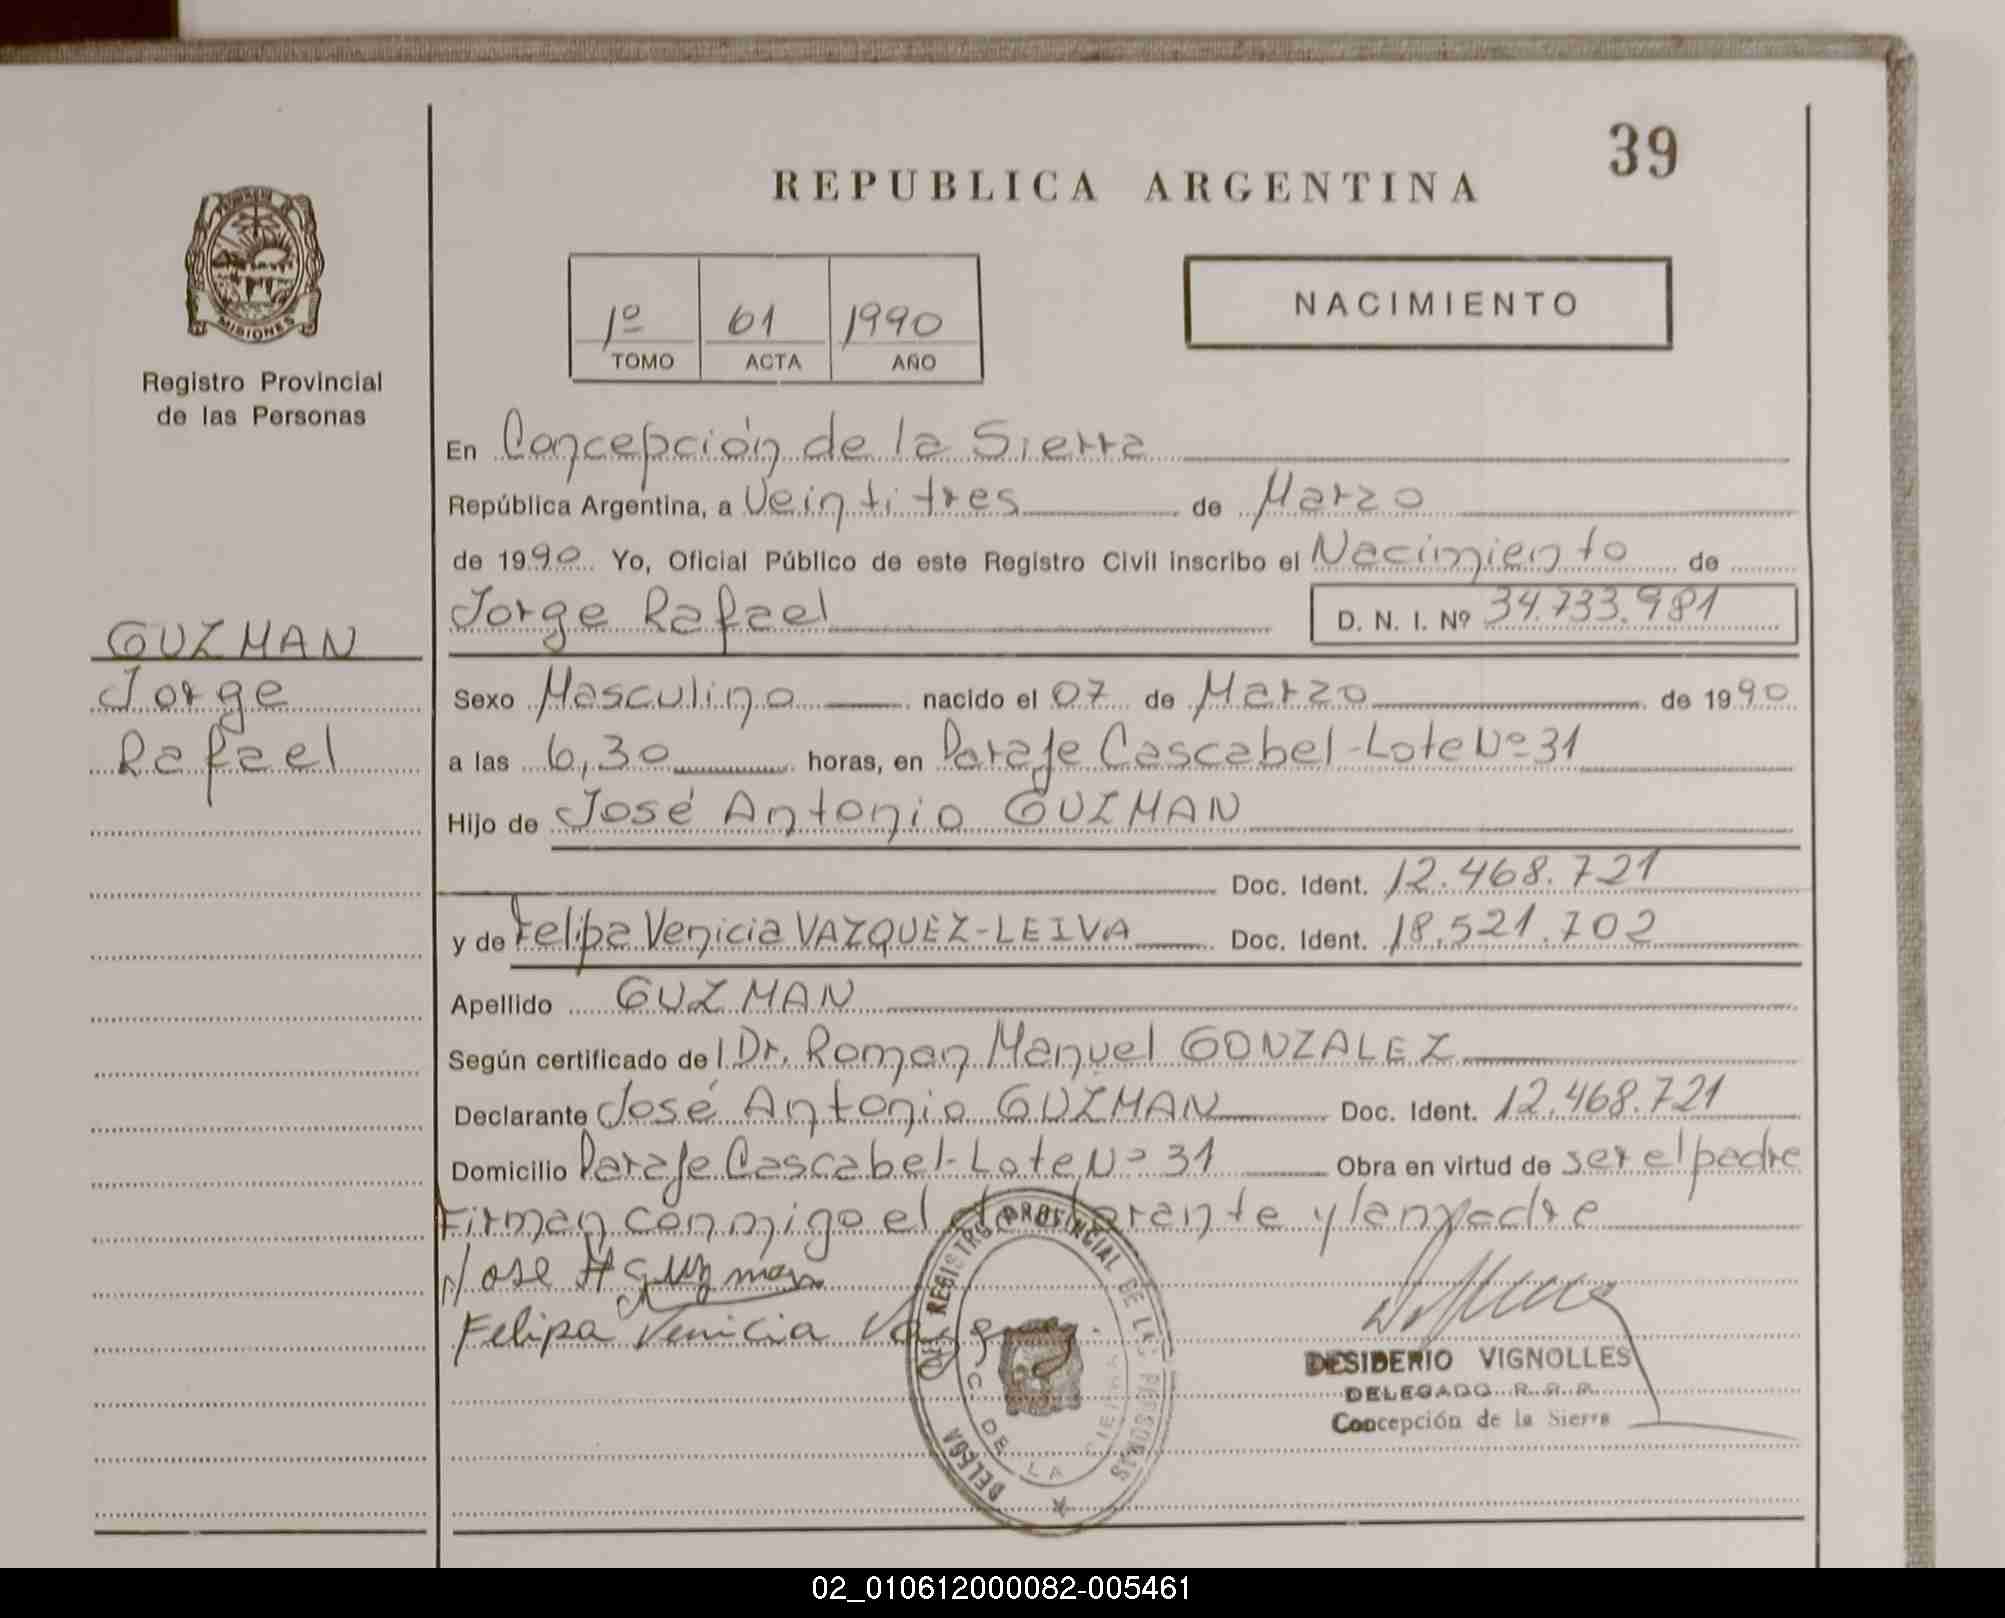 39
REPUBLICA ARGENTINA
MISIONES
Registro Provincial
de las Personas
1º 61 1990
TOMO ACTA AÑO
NACIMIENTO
En Concepción de la Sierra
República Argentina, a Veintitres de Marzo
de 1990 Yo, Oficial Público de este Registro Civil inscribo el Nacimiento de
Jorge Rafael D. N. I. Nº 34.733.981
GUZMAN
Jorge
Rafael
Sexo Masculino nacido el 07 de Marzo de 1990
a las 6,30 horas, en Paraje Cascabel-Lote Nº 31
Hijo de José Antonio GUZMAN
Doc. Ident. 12.468.721
y de Felipa Venicia VAZQUEZ-LEIVA Doc. Ident. 18.521.702
Apellido GUZMAN
Según certificado del Dr. Roman Manuel GONZALEZ
Declarante José Antonio GUZMAN Doc. Ident. 12.468.721
Domicilio Paraje Cascabel-Lote Nº 31 Obra en virtud de ser el padre
Firman conmigo el declarante y
Jose A guzman
Felipa Venicia
DEL REGISTRO PROVINCIAL DE LAS PERSONAS
DELEGA
C. DE LA SIERRA
DESIDERIO VIGNOLLES
DELEGADO R. P. P.
Concepción de la Sierra
02_010612000082-005461